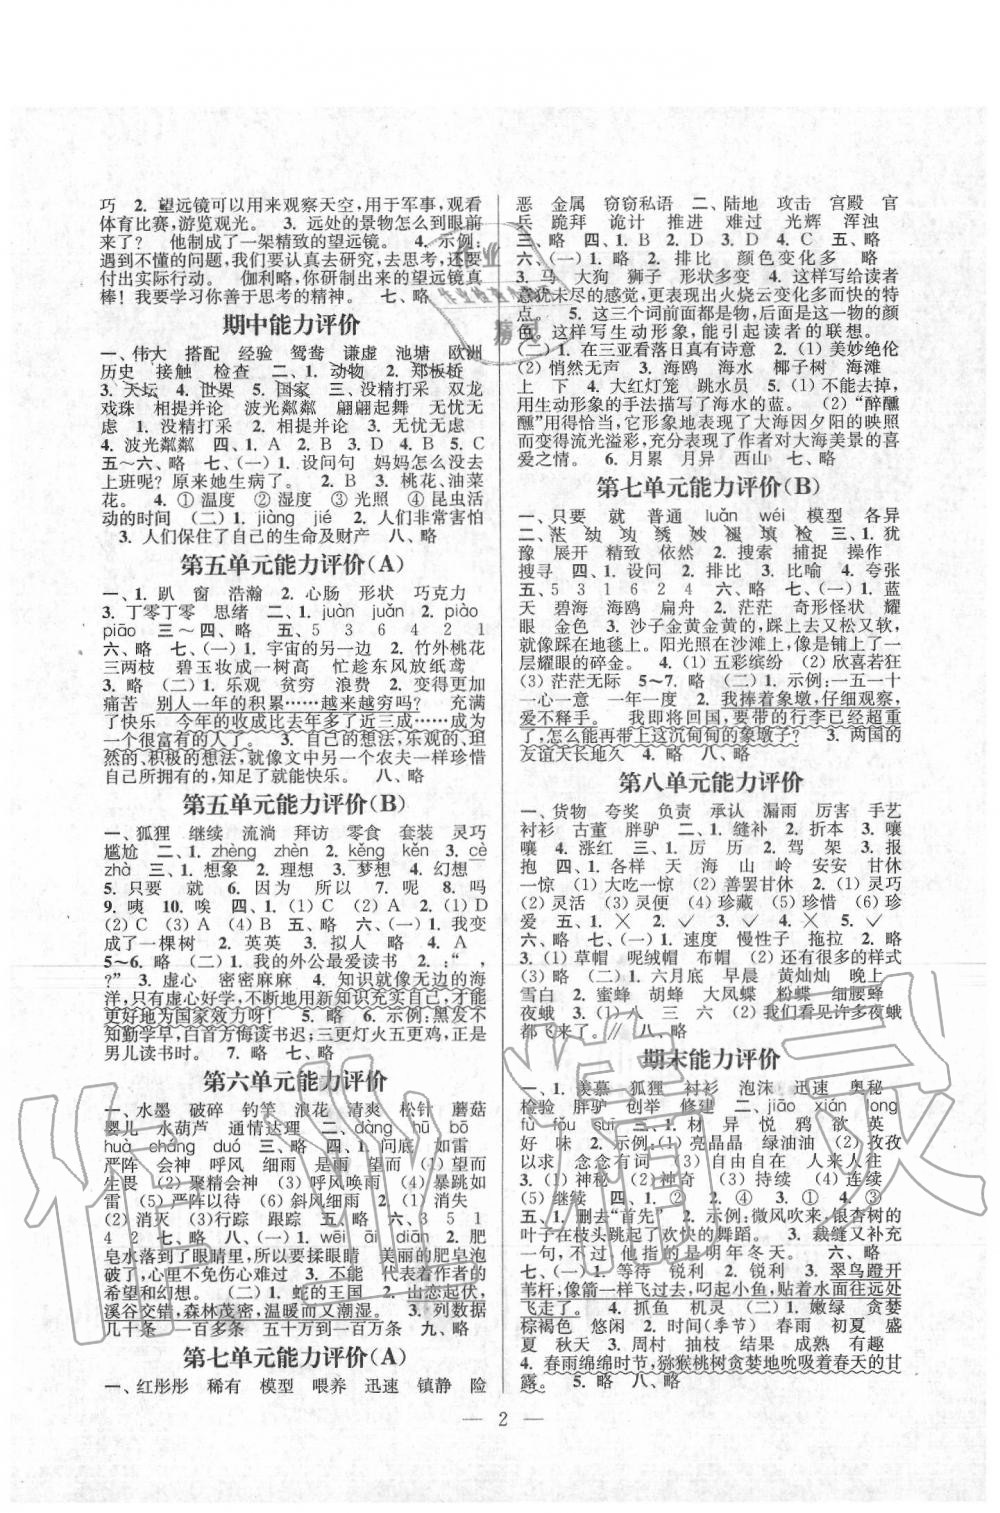 巧 2. 望远镜可以用来观察天空,用于军事,观看
体育比赛,游览观光。 3. 远处的景物怎么到眼前
来了? 他制成了一架精致的望远镜。 4. 示例:
遇到不懂的问题,我们要认真去研究,去思考,还要
付出实际行动。 伽利略,你研制出来的望远镜真
棒!我要学习你善于思考的精神。 七、略
期中能力评价
一、伟大 搭配 经验 鸳鸯 谦虚 池塘 欧洲
历史 接触 检查 二、1. 动物 2. 郑板桥
3. 天坛 4. 世界 5. 国家 三、没精打采 双龙
戏珠 相提并论 波光粼粼 翩翩起舞 无忧无
虑 1. 没精打采 2. 相提并论 3. 无忧无虑
4. 波光粼粼 四、1. A 2. B 3. D 4. B 5. C
五～六、略 七、(一) 1. 设问句 妈妈怎么没去
上班呢?原来她生病了。 2. B 3. 桃花、油菜
花。 4. ① 温度 ② 湿度 ③ 光照 ④ 昆虫活
动的时间 (二) 1. jiàng jié 2. 人们非常害怕
3. 人们保住了自己的生命及财产 八、略
第五单元能力评价(A)
一、1. 趴 窗 浩瀚 2. 心肠 形状 巧克力
3. 丁零丁零 思绪 二、1. juàn juǎn 2. piào
piāo 三～四、略 五、5 3 6 4 2 1
六、略 七、(一) 1. 宇宙的另一边 2. 竹外桃花
三两枝 碧玉妆成一树高 忙趁东风放纸鸢
3. 略 (二) 1. 乐观 贫穷 浪费 2. 变得更加
痛苦 别人一年的积累……越来越穷吗? 充满
了快乐 今年的收成比去年多了近三成……成为
一个很富有的人了。 3. 自己的想法,乐观的、坦
然的、积极的想法,就像文中另一个农夫一样珍惜
自己所拥有的,知足了就能快乐。 八、略
第五单元能力评价(B)
一、狐狸 继续 流淌 拜访 零食 套装 灵巧
尴尬 二、1. zhèng zhēn 2. kěng kěn 3. cè
zhà 三、1. 想象 2. 理想 3. 梦想 4. 幻想
5. 只要 就 6. 因为 所以 7. 呢 8. 吗
9. 咦 10. 唉 四、1. (1) C (2) A 2. (1) D
(2) C (3) A (4) B 五、略 六、(一) 1. 我变
成了一棵树 2. 英英 3. 拟人 略 4. A
5～6. 略 (二) 1. 我的外公最爱读书 2. :“ ,
?” 3. 虚心 密密麻麻 4. 知识就像无边的海
洋,只有虚心好学,不断地用知识丰富自己,才能
更好地为国家效力呀! 5. 略 6. 示例:黑发不
知勤学早,白首方悔读书迟;三更灯火五更鸡,正是
男儿读书时。 7. 略 七、略
第六单元能力评价
一、水墨 破碎 钓竿 浪花 清爽 松针 蘑菇
婴儿 水葫芦 通情达理 二、dàng hū bō
huà chéng duó 三、略 四、1. 问底 如雷
严阵 会神 呼风 细雨 是雨 画死 2. (1) 严阵
会神 呼风 细雨
雷
(2) 消灭 (3) 行踪 跟踪 五、略 六、3 5 1
4 2 七、略 八、(一) 1. wēi āi diān 2. 肥
皂水落到了眼睛里,所以要揉眼睛 美丽的肥皂泡
破了,心里免不了伤心难过 3. 不能 代表着作者的
希望和幻想。 (二) 1. 蛇的王国 2. 山峦起伏,
溪谷交错,森林茂密,温暖而又潮湿。 3. 列数据
几十条 一百多条 五十万到一百万条 九、略
第七单元能力评价(A)
一、红彤彤 稀有 模型 喂养 迅速 镇静 险
恶 金属 窃窃私语 二、陆地 攻击 宫殿 官
兵 跪拜 诡计 推进 难过 光辉 浑浊
三、略 四、1. B 2. D 3. A 4. D 5. C 五、略
六、(一) 1. 略 2. 排比 颜色变化多 略
3. 马 大狗 狮子 形状多变 4. 这样写给读者
意犹未尽的感觉,更突出了火烧云变化多、快的特
点。 5. 这三个词前面都是物,后面是这一物的颜
色。这样写生动形象,能引起读者的联想。
(二) 1. 在三亚看落日真有诗意 2. (1) 美妙绝伦
(2) 悄然无声 3. 海鸥 海水 椰子树 海滩
上 下 4. 大红灯笼 跳水员 5. (1) 不能去掉,
用生动形象的手法描写了海水的蓝。 (2) “醉醺
醺”用得恰当,它形象地表现了大海因夕阳的映照
而变得流光溢彩,充分表现了作者对大海美景的喜
爱之情。 6. 月累 月异 西山 七、略
第七单元能力评价(B)
一、只要 就 普通 luǎn wéi 模型 各异
二、茫 幼 功 绣 妙 褪 填 检 三、1. 犹
豫 展开 精致 依然 2. 搜索 捕捉 操作
搜寻 四、1. 设问 2. 排比 3. 比喻 4. 夸张
五、5 3 1 6 2 4 六、略 七、(一) 1. 蓝
天 碧海 海鸥 扁舟 2. 茫茫 奇形怪状 耀
眼 金色 3. 沙子金黄金黄的,踩上去又松又软,
就像踩在地毯上。阳光照在沙滩上,像是铺上了一
层耀眼的碎金。 4. (1) 五彩缤纷 (2) 欣喜若狂
(3) 茫茫无际 5～7. 略 (二) 1. 示例:一五一十
一心一意 一年一度 2. 我捧着象墩,仔细观察,
爱不释手。 我即将回国,要带的行李已经超重
了,怎么能再带上这沉甸甸的象墩子? 3. 两国的
友谊天长地久 4. 略 八、略
第八单元能力评价
一、货物 夸奖 负责 承认 漏雨 厉害 手艺
衬衫 古董 胖驴 二、1. 缝补 2. 折本 3. 嚷
嚷 4. 涨红 三、1. 厉 历 2. 驾 架 3. 报
抱 四、1. 各样 天 海 山 岭 安安 甘休
一惊 (1) 大吃一惊 (2) 善罢甘休 2. (1) 灵巧
(2) 灵活 (3) 灵便 (4) 珍藏 (5) 珍惜 (6) 珍
爱 五、1. × 2. ✓ 3. ✓ 4. × 5. ✓
六、略 七、(一) 1. 速度 慢性子 拖拉 2. 略
3. (1) 草帽 呢绒帽 布帽 (2) 还有很多的样式
(3) 略 (二) 1. 六月底 早晨 黄灿灿 晚上
雪白 2. 蜜蜂 胡蜂 大凤蝶 粉蝶 细腰蜂
夜蛾 3. (1) 八 三 六 (2) 我们看见许多夜蛾
都飞来了。// 八、略
期末能力评价
一、1. 羡慕 狐狸 衬衫 泡沫 迅速 奥秘
检验 胖驴 创举 修建 二、jiāo xián long
fù fǒu suī 三、1. 材 异 悦 鸦 欲 英
好 味 2. 示例:(1) 亮晶晶 绿油油 (2) 孜孜
以求 念念有词 (3) 自由自在 人来人往
3. (1) 神秘 (2) 神奇 (3) 持续 (4) 连续
(5) 继续 四、1. ② 2. ④ 3. ① 4. ③
五、1. 删去“首先” 2. 示例:微风吹来,银杏树的
叶子在枝头跳起了欢快的舞蹈。 3. 裁缝又补充
一句,不过,我指的是明年冬天。 六、略
七、(一) 1. 等待 锐利 锐利 3. 翠鸟蹬开
苇秆,像箭一样飞过去,叼起小鱼,贴着水面往远处
飞走了。 4. 抓鱼 机灵 (二) 1. 嫩绿 贪婪
棕褐色 悠闲 2. 时间(季节) 春雨 初夏 盛
夏 秋天 3. 周村 抽枝 结果 成熟 有趣
4. 春雨绵绵时节,猕猴桃树贪婪地吮吸着春天的甘
露。 5. 略 八、略
— 2 —